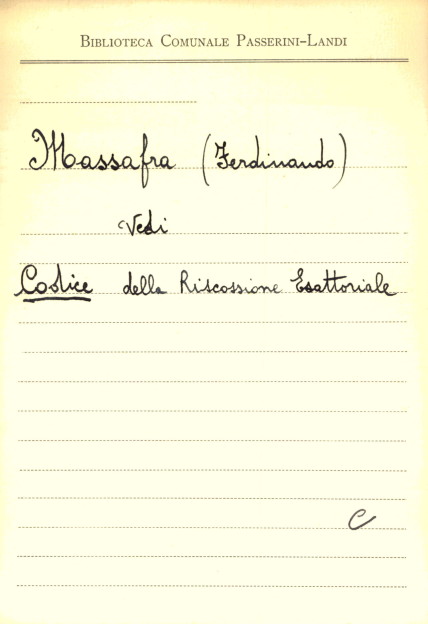 BIBLIOTECA COMUNALE PASSERINI-LANDI
Massafra (Ferdinando)
Vedi
Codice della Riscossione Esattoriale
C